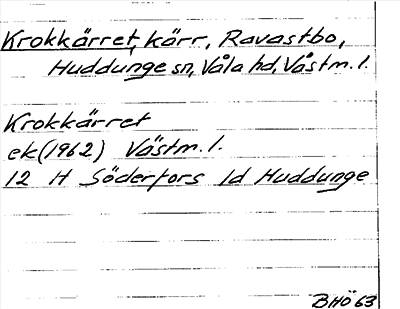 Krokkärret, kärr, Ravastbo,
Huddunge sn, Våla hd, Västm. l.
Krokkärret
ek (1962) Västm. l.
12 H Söderfors 1d Huddunge
BHÖ 63